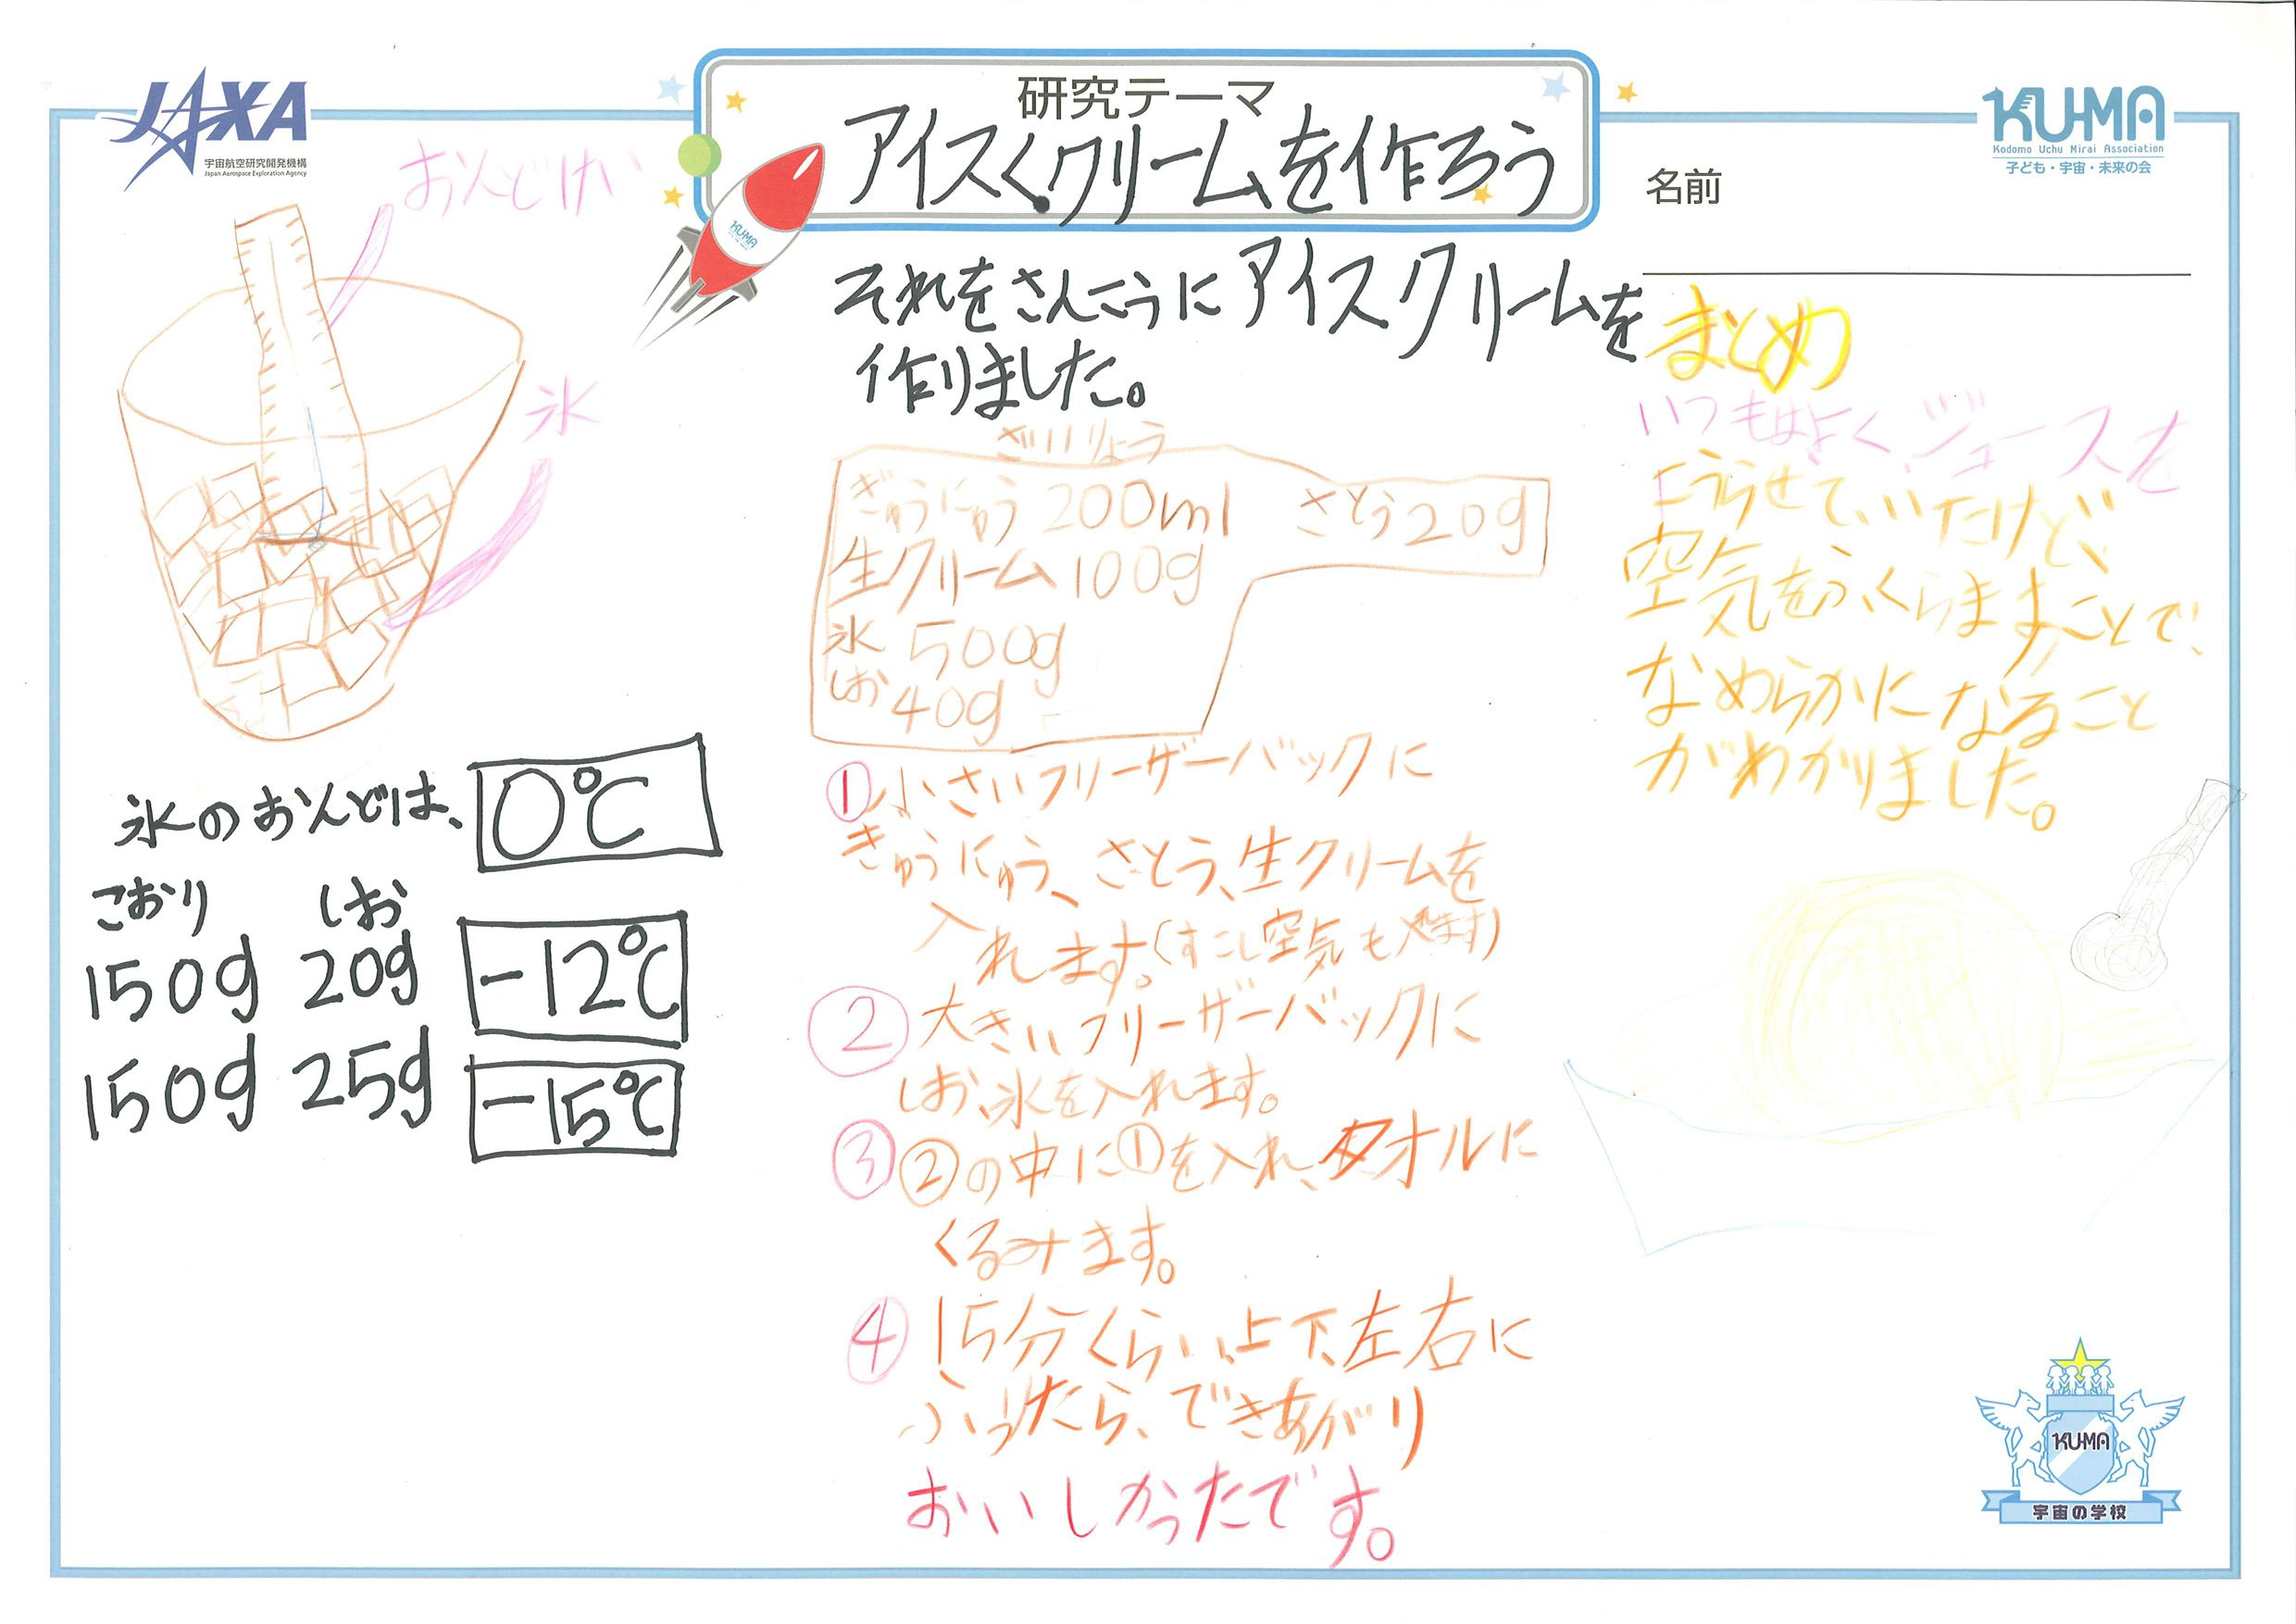 JAXA
宇宙航空研究開発機構
Japan Aerospace Exploration Agency
研究テーマ
アイスクリームを作ろう
KUMA
KU-MA
Kodomo Uchu Mirai Association
子ども・宇宙・未来の会
名前
おんどけい
氷
氷のおんどは、0℃
こおり しお
150g 20g -12℃
150g 25g -15℃
それをさんこうにアイスクリームを
作りました。
ざいりょう
ぎゅうにゅう 200ml さとう20g
生クリーム100g
氷 500g
しお 40g
①小さいフリーザーバックに
ぎゅうにゅう、さとう、生クリームを
入れます。(すこし空気も入れます)
②大きいフリーザーバックに
しお、氷を入れます。
③②の中に①を入れ、タオルに
くるみます。
④15分くらい、上下、左右に
ふったら、できあがり
おいしかったです。
まとめ
いつもはよくジュースを
こうらせていたけど、
空気をふくらますことで、
なめらかになること
がわかりました。
KU-MA
宇宙の学校